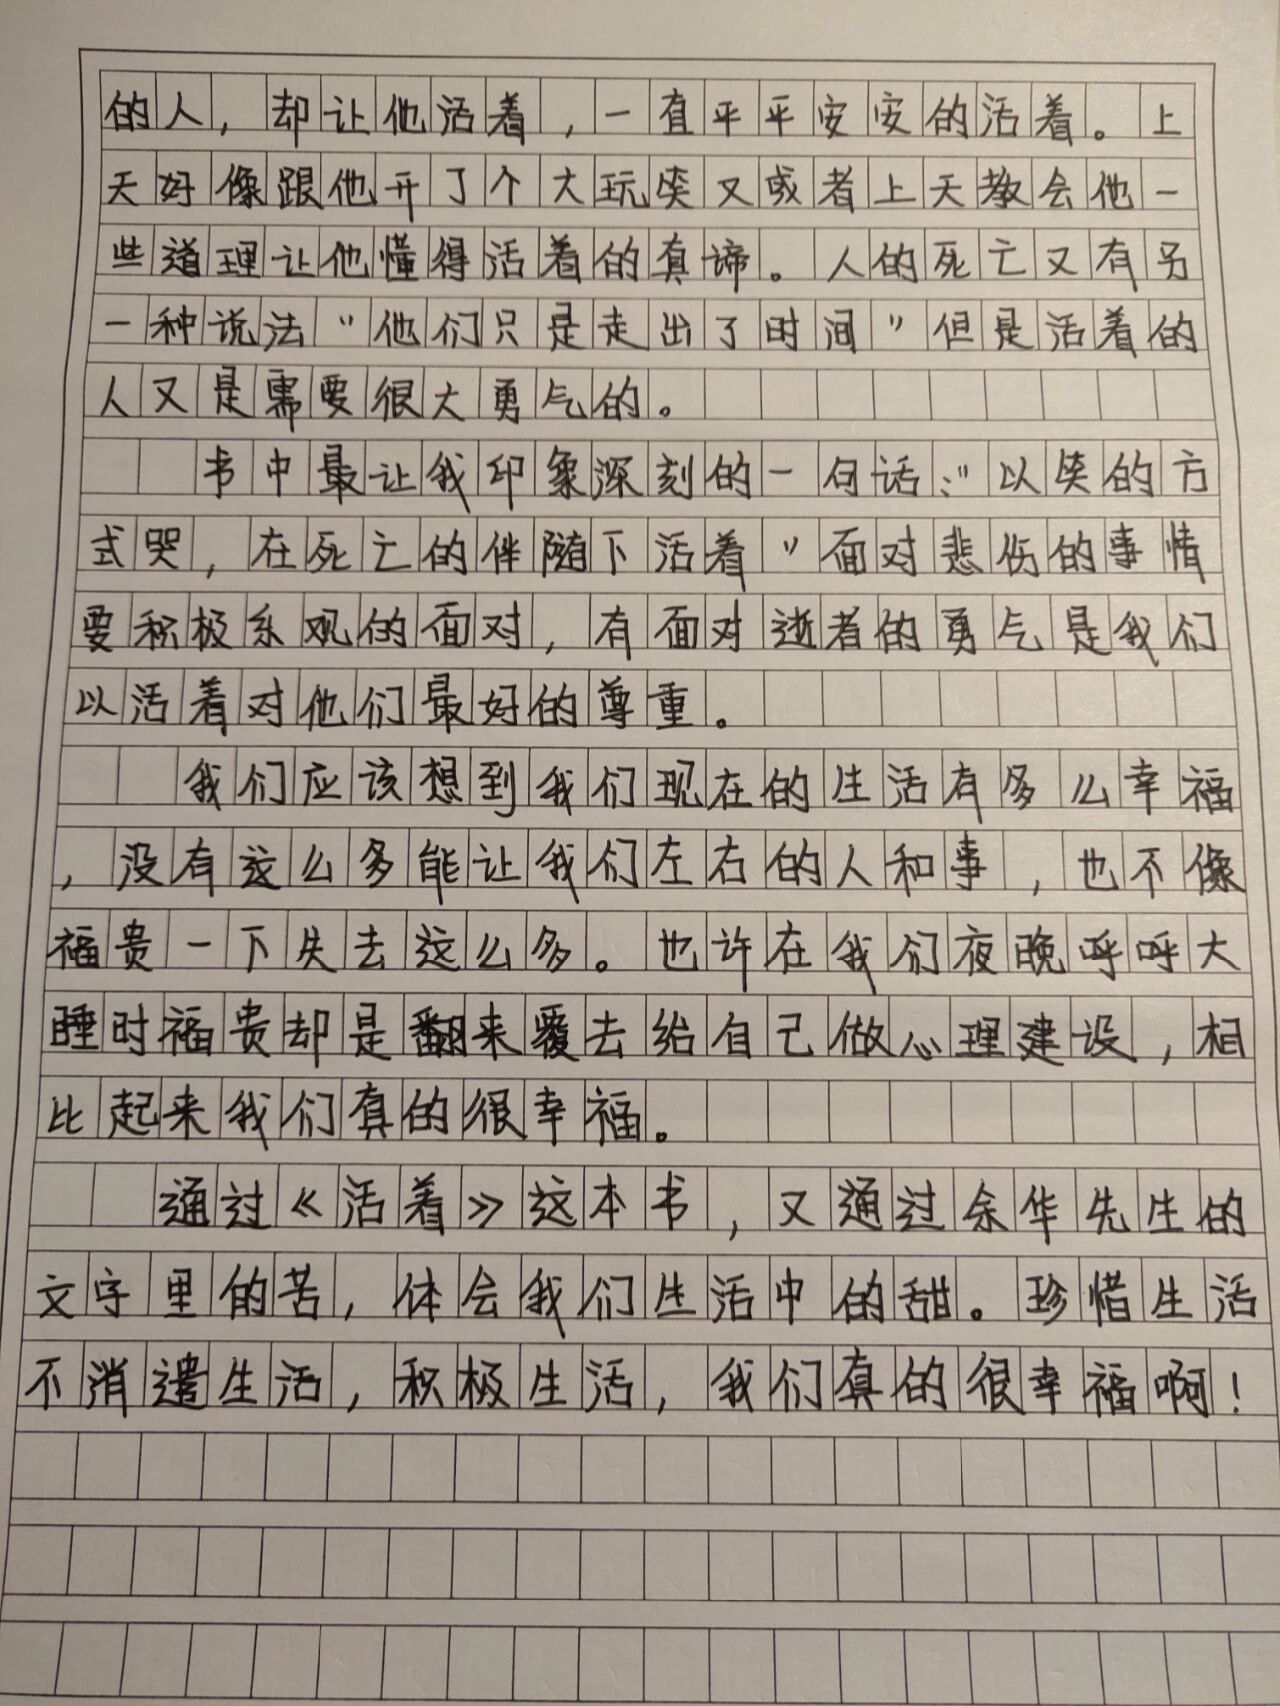 的人，却让他活着，一直平平安安的活着。上
天好像跟他开了个大玩笑又或者上天教会他一
些道理让他懂得活着的真谛。人的死亡又有另
一种说法“他们只是走出了时间”但是活着的
人又是需要很大勇气的。
书中最让我印象深刻的一句话：“以笑的方
式哭，在死亡的伴随下活着”面对悲伤的事情
要积极乐观的面对，有面对逝者的勇气是我们
以活着对他们最好的尊重。
我们应该想到我们现在的生活有多么幸福
，没有这么多能让我们左右的人和事，也不像
福贵一下失去这么多。也许在我们夜晚呼呼大
睡时福贵却是翻来覆去给自己做心理建设，相
比起来我们真的很幸福。
通过《活着》这本书，又通过余华先生的
文字里的苦，体会我们生活中的甜。珍惜生活
不消遣生活，积极生活，我们真的很幸福啊！